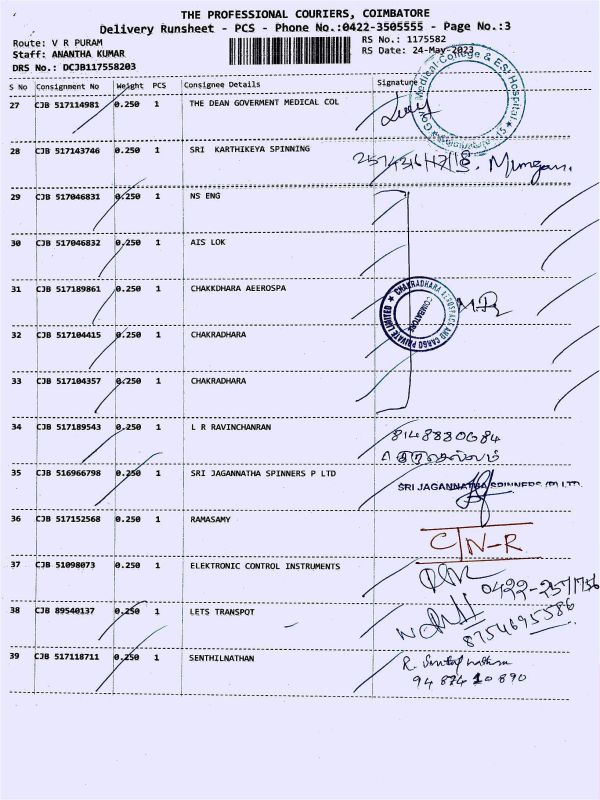 THE PROFESSIONAL COURIERS, COIMBATORE
Delivery Runsheet - PCS - Phone No.:0422-3505555 - Page No.:3
Route: V R PURAM
RS No.: 1175582
Staff: ANANTHA KUMAR
RS Date: 24-May-2023
DRS No.: DCJB117558203
S No Consignment No Weight PCS Consignee Details Signature
27 CJB 517114981 0.250 1 THE DEAN GOVERMENT MEDICAL COL
Medical College & ESI Hospital
28 CJB 517143746 0.250 1 SRI KARTHIKEYA SPINNING
Murugan.
29 CJB 517046831 0.250 1 NS ENG
30 CJB 517046832 0.250 1 AIS LOK
31 CJB 517189861 0.250 1 CHAKKDHARA AEEROSPA
CHAKRADHARA AEROSPACE AND CARGO PRIVATE LIMITED
COIMBATORE
32 CJB 517104415 0.250 1 CHAKRADHARA
33 CJB 517104357 0.250 1 CHAKRADHARA
34 CJB 517189543 0.250 1 L R RAVINCHANRAN
8148830684
35 CJB 516966798 0.250 1 SRI JAGANNATHA SPINNERS P LTD
SRI JAGANNATHA SPINNERS (P) LTD.
36 CJB 517152568 0.250 1 RAMASAMY
C/N-R
37 CJB 51098073 0.250 1 ELEKTRONIC CONTROL INSTRUMENTS
0422-2571756
38 CJB 89540137 0.250 1 LETS TRANSPOT
8754695586
39 CJB 517118711 0.250 1 SENTHILNATHAN
R. Senthilnathan
94874 10 890